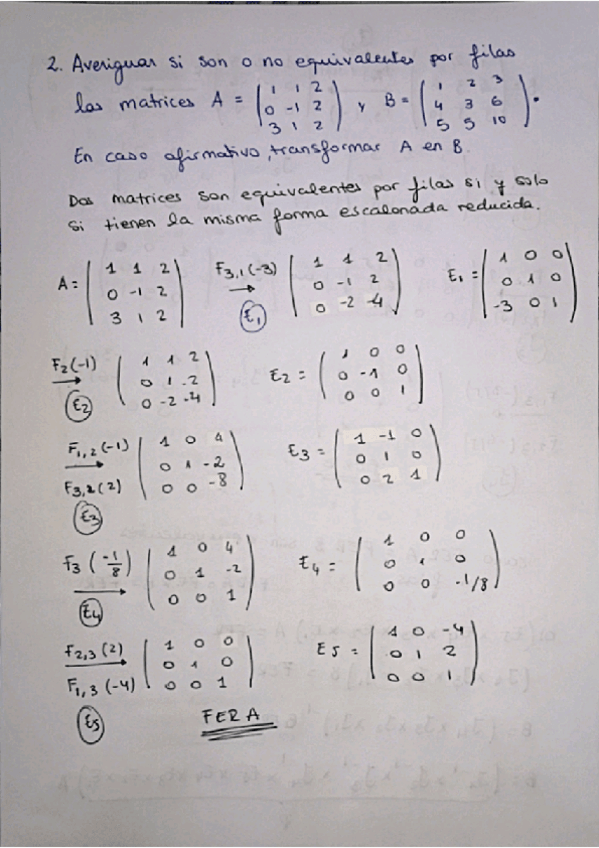 2. Averiguar si son o no equivalentes por filas
las matrices A = ( 1 1 2 / 0 -1 2 / 3 1 2 ) y B = ( 1 2 3 / 4 3 6 / 5 5 10 ).
En caso afirmativo, transformar A en B.
Dos matrices son equivalentes por filas si y solo
si tienen la misma forma escalonada reducida.
A = ( 1 1 2 / 0 -1 2 / 3 1 2 ) F3,1(-3) → (E1) ( 1 1 2 / 0 -1 2 / 0 -2 -4 ) E1 = ( 1 0 0 / 0 1 0 / -3 0 1 )
F2(-1) → (E2) ( 1 1 2 / 0 1 -2 / 0 -2 -4 ) E2 = ( 1 0 0 / 0 -1 0 / 0 0 1 )
F1,2(-1) F3,2(2) → (E3) ( 1 0 4 / 0 1 -2 / 0 0 -8 ) E3 = ( 1 -1 0 / 0 1 0 / 0 2 1 )
F3(-1/8) → (E4) ( 1 0 4 / 0 1 -2 / 0 0 1 ) E4 = ( 1 0 0 / 0 1 0 / 0 0 -1/8 )
F2,3(2) F1,3(-4) → (E5) ( 1 0 0 / 0 1 0 / 0 0 1 ) E5 = ( 1 0 -4 / 0 1 2 / 0 0 1 )
FER A